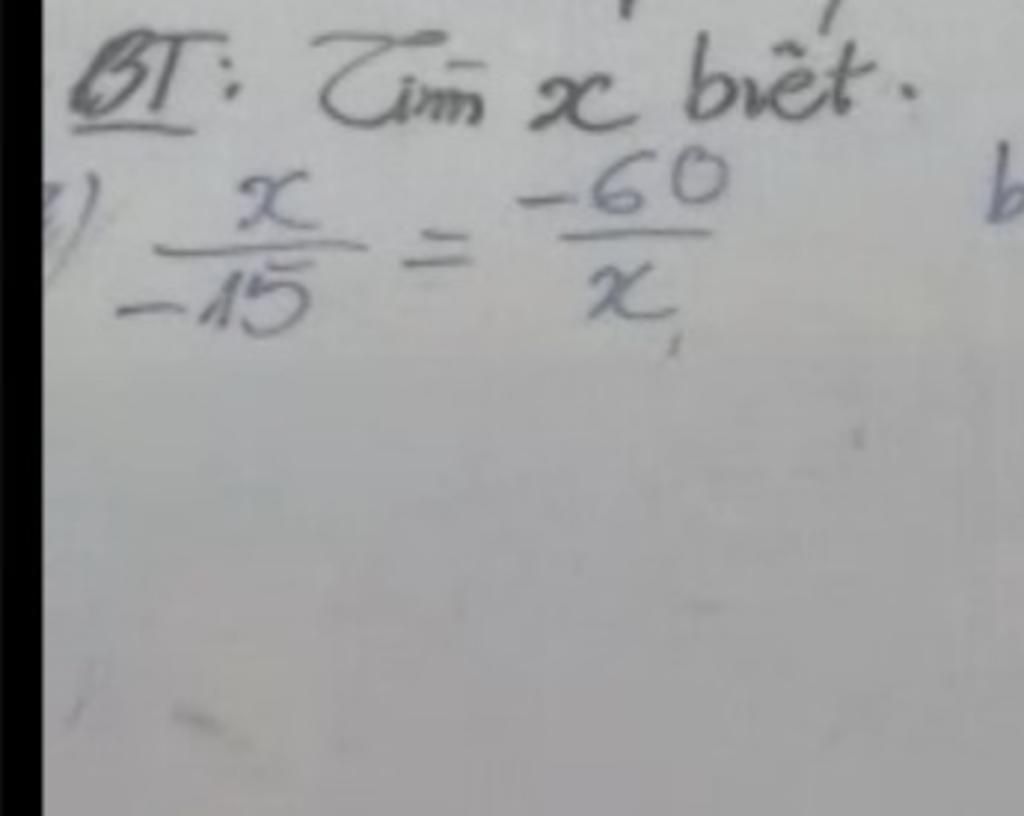 BT: Tìm x biết.
a) x/-15 = -60/x b